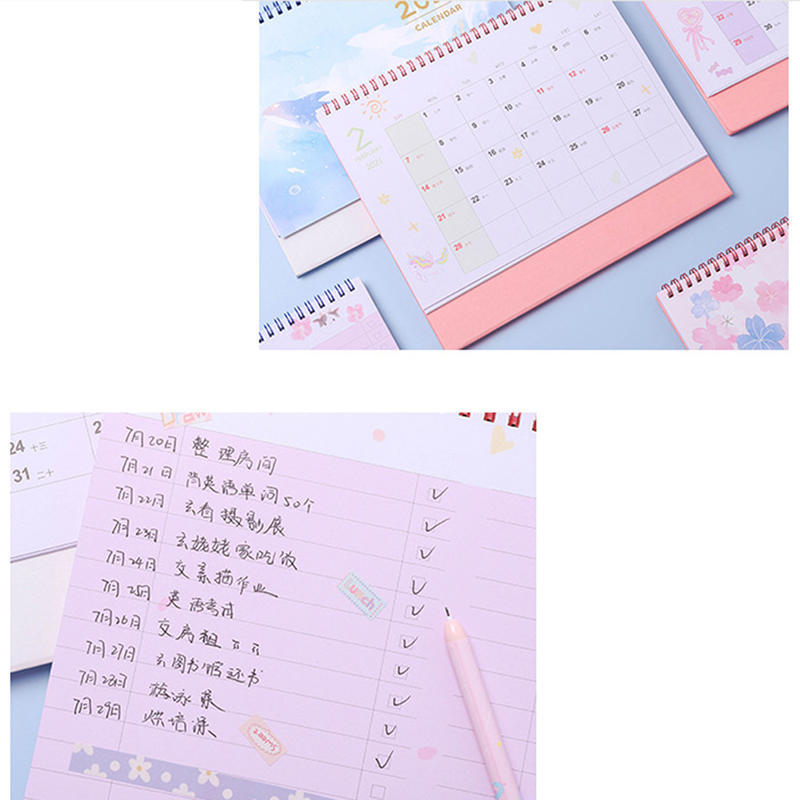 CALENDAR
2
FEBRUARY
2021
SUN MON TUE WED THU FRI SAT
1 2 3 4 5 6
7 8 9 10 11 12 13
14 15 16 17 18 19 20
21 22 23 24 25 26 27
28
22
29
24 十三
31 二十
7月20日 整理房间
7月21日 背英语单词50个
7月22日 去看摄影展
7月23日 去姥姥家吃饭
7月24日 交素描作业
7月25日 英语考试
7月26日 交房租
7月27日 去图书馆还书
7月28日 游泳课
7月29日 烘培课
Lunch
Sweet